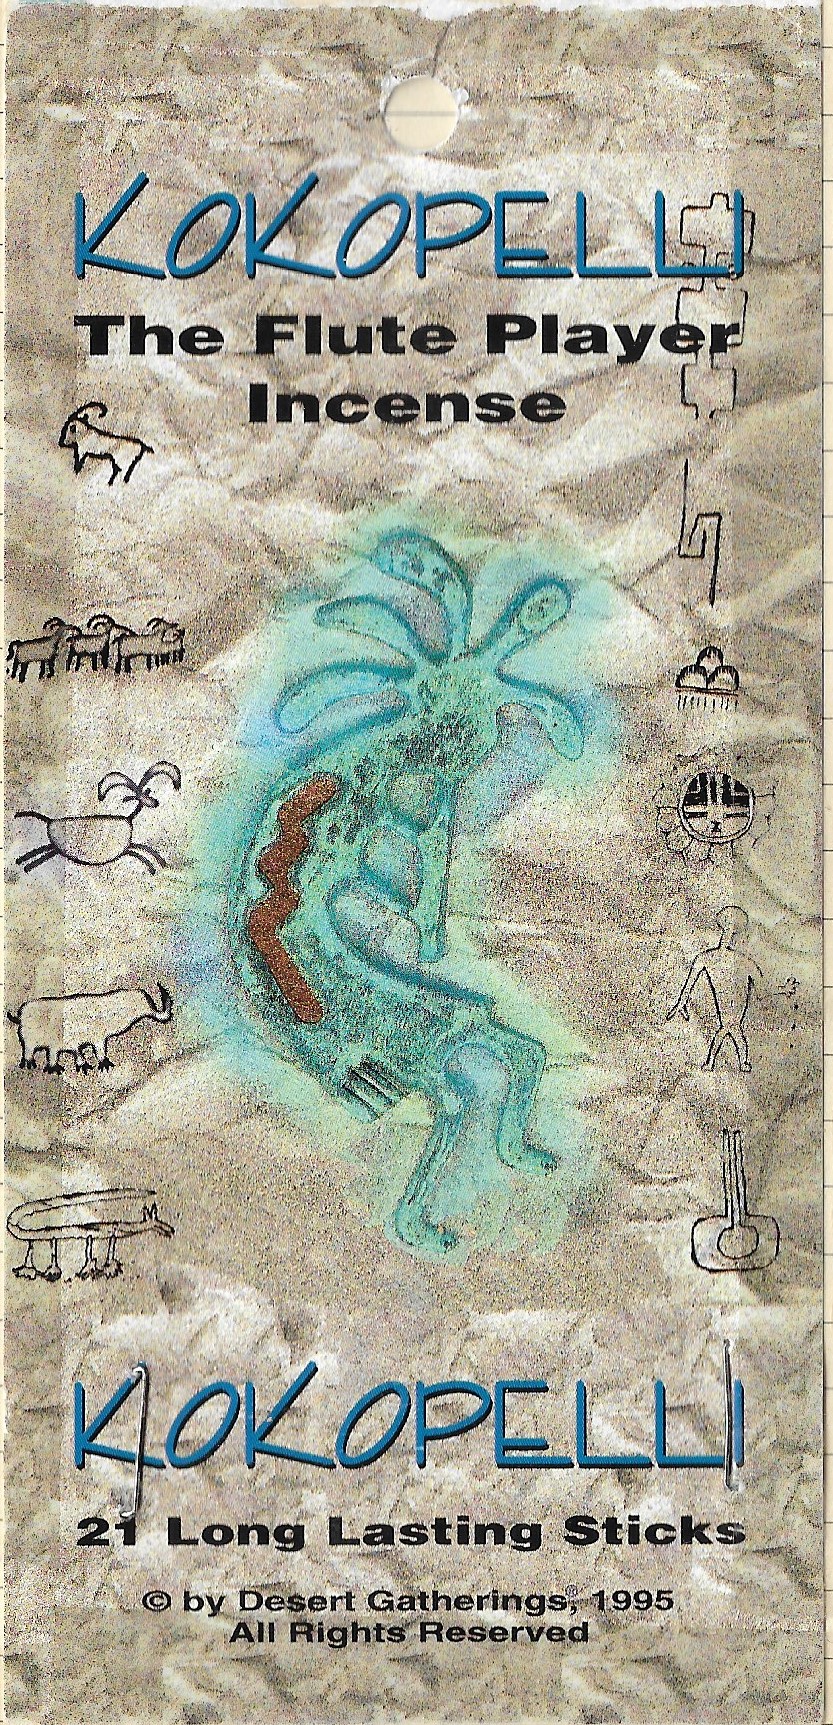 KOKOPELLI
The Flute Player
Incense
KOKOPELLI
21 Long Lasting Sticks
© by Desert Gatherings®, 1995
All Rights Reserved